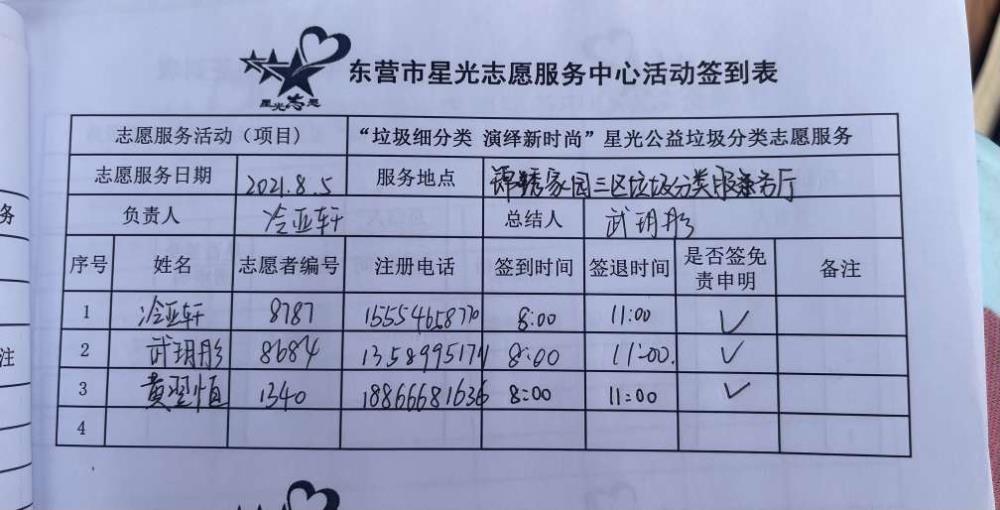 东营市星光志愿服务中心活动签到表
星光志愿
志愿服务活动（项目） “垃圾细分类 演绎新时尚”星光公益垃圾分类志愿服务
志愿服务日期 2021.8.5 服务地点 锦绣家园三区垃圾分类服务厅
负责人 冷亚轩 总结人 武玥彤
序号 姓名 志愿者编号 注册电话 签到时间 签退时间 是否签免责申明 备注
1 冷亚轩 8787 15554658770 8:00 11:00 ✓
2 武玥彤 8684 13589951 8:00 11:00. ✓
3 黄翌恒 1340 18866681636 8:00 11:00 ✓
4
务
注